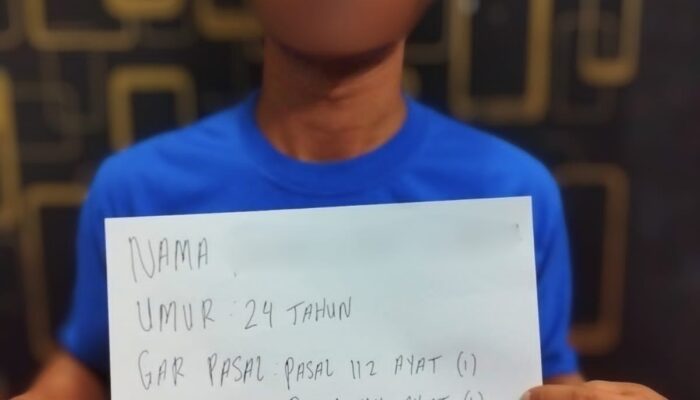 NAMA
UMUR : 24 TAHUN
GAR PASAL : PASAL 112 AYAT (1)
AYAT (1)